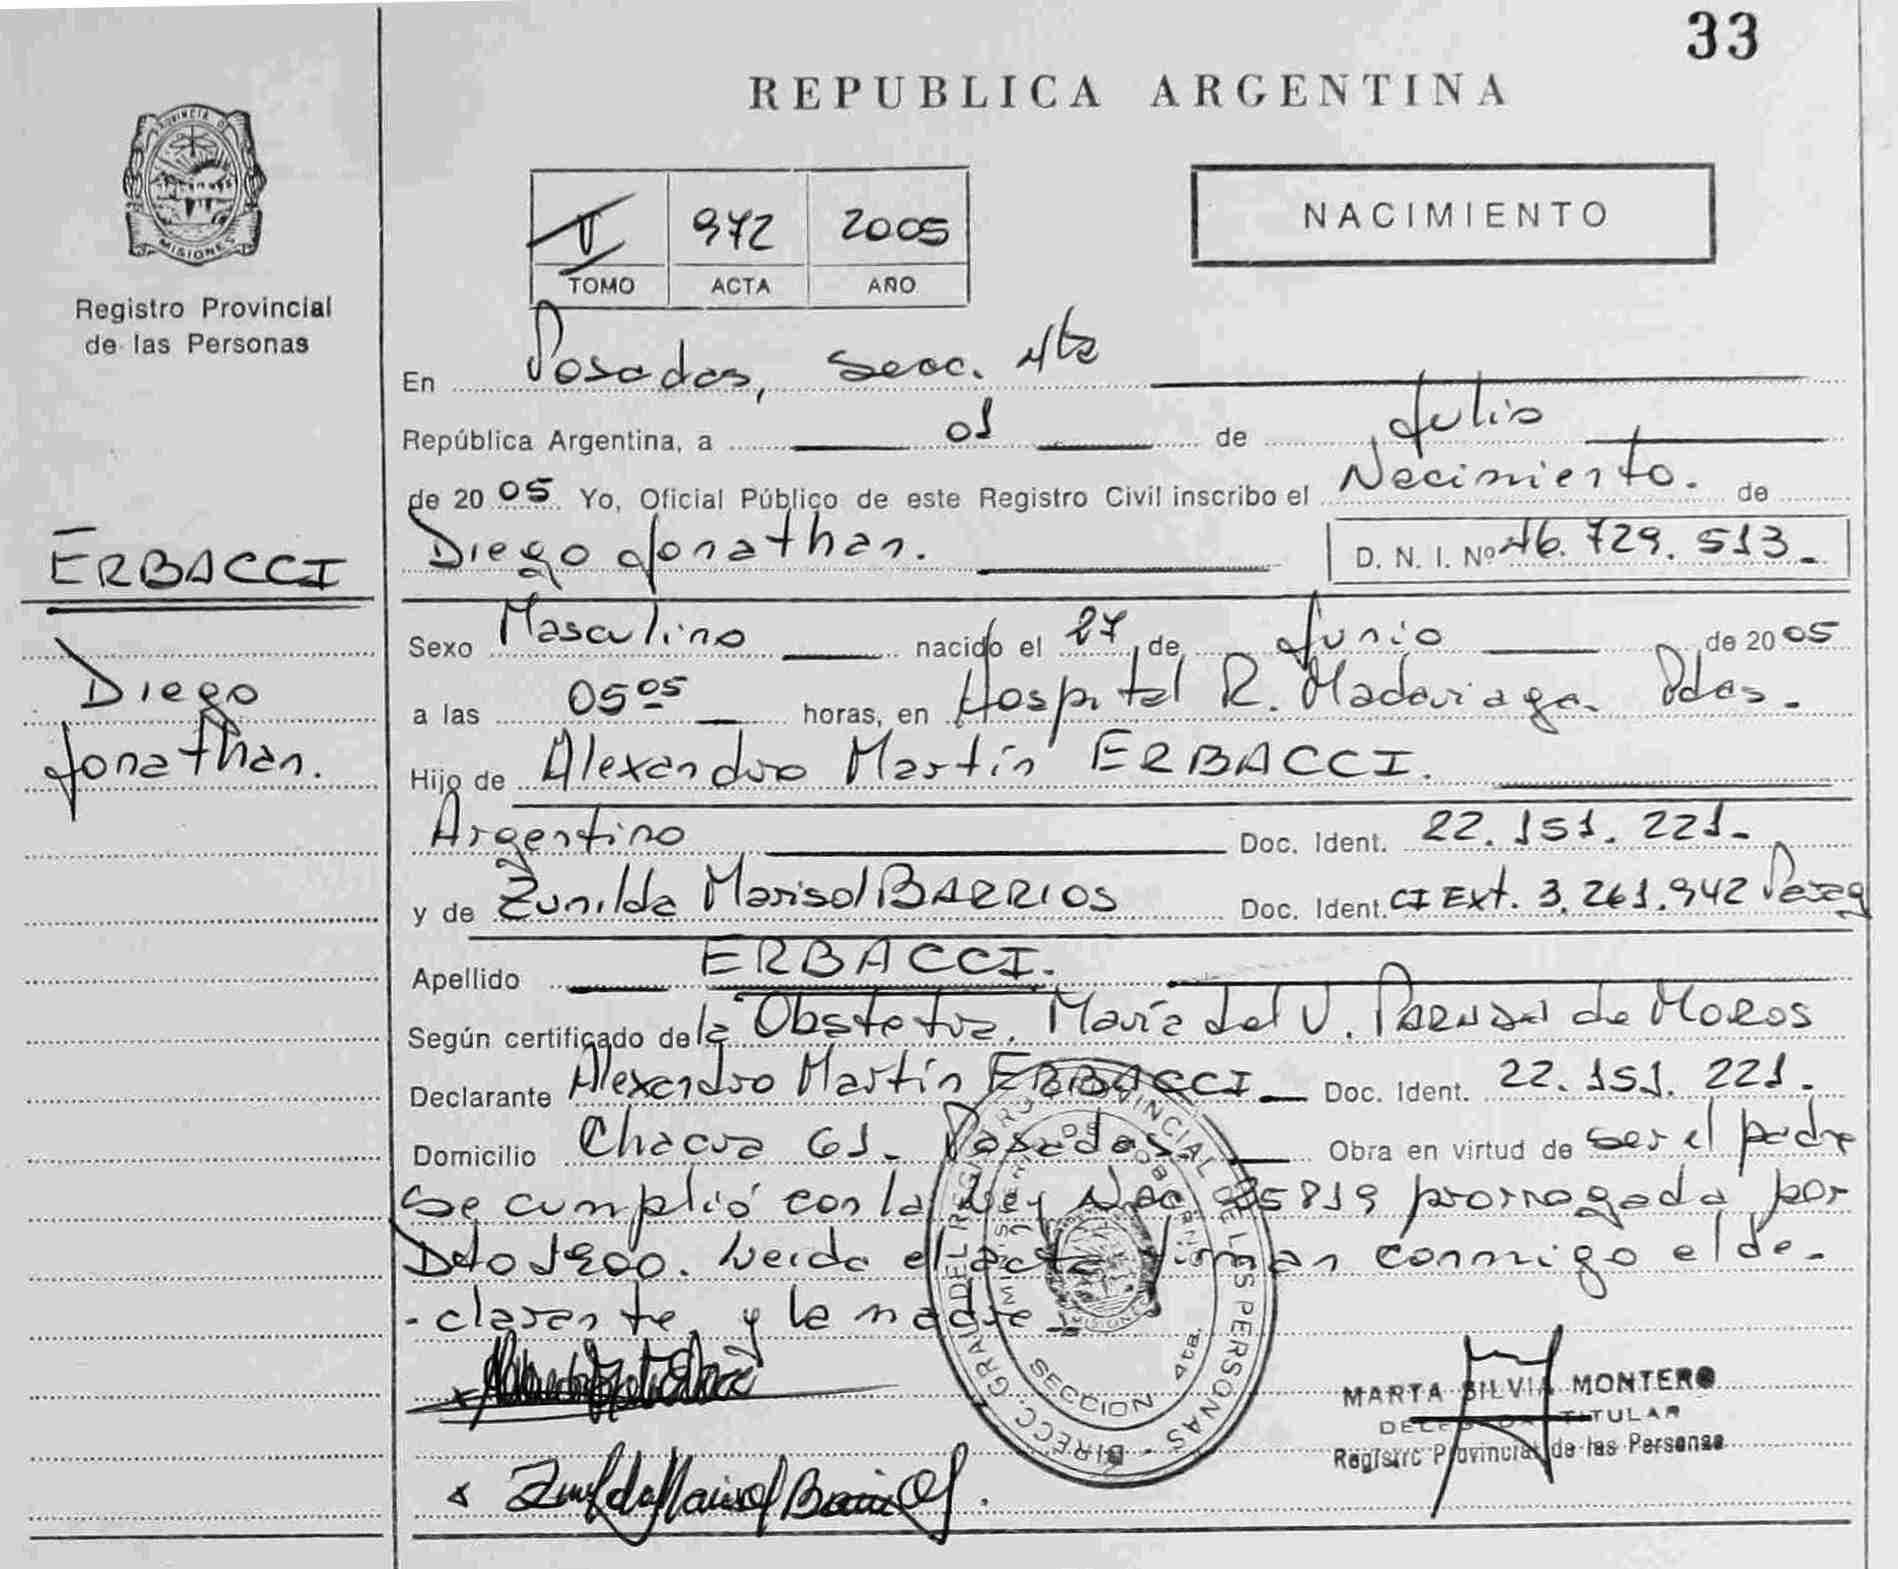 33
REPUBLICA ARGENTINA
PROVINCIA DE
MISIONES
Registro Provincial
de las Personas
972 2005
TOMO ACTA AÑO
NACIMIENTO
En Posadas, Secc. 4ta
República Argentina, a 01 de Julio
de 2005 Yo, Oficial Público de este Registro Civil inscribo el Nacimiento. de
Diego Jonathan. D. N. I. Nº 46.729.513.-
ERBACCI
Diego
Jonathan.
Sexo Masculino nacido el 27 de Junio de 2005
a las 05 05 horas, en Hospital R. Madariaga. Pdas.-
Hijo de Alexandro Martín ERBACCI.
Argentino Doc. Ident. 22.151.221.-
y de Zunilda Marisol BARRIOS Doc. Ident. CI Ext. 3.261.942 Parag
Apellido ERBACCI.
Según certificado de la Obstetra. María del V. de MOROS
Declarante Alexandro Martín ERBACCI Doc. Ident. 22.151.221.
Domicilio Chacra 61- Posadas.- Obra en virtud de ser el padre
Se cumplió con la Ley Nac. 25819 prorrogada por
Dto 1900. Leida el acta firman conmigo el de-
-clarante y la madre.-
DIRECC. GRAL. DEL REGISTRO PROVINCIAL DE LAS PERSONAS -
MINISTERIO DE GOBIERNO
MISIONES
SECCION 4ta.
Zunilda Marisol Barrios.
MARTA SILVIA MONTERO
DELEGADA TITULAR
Registro Provincial de las Personas